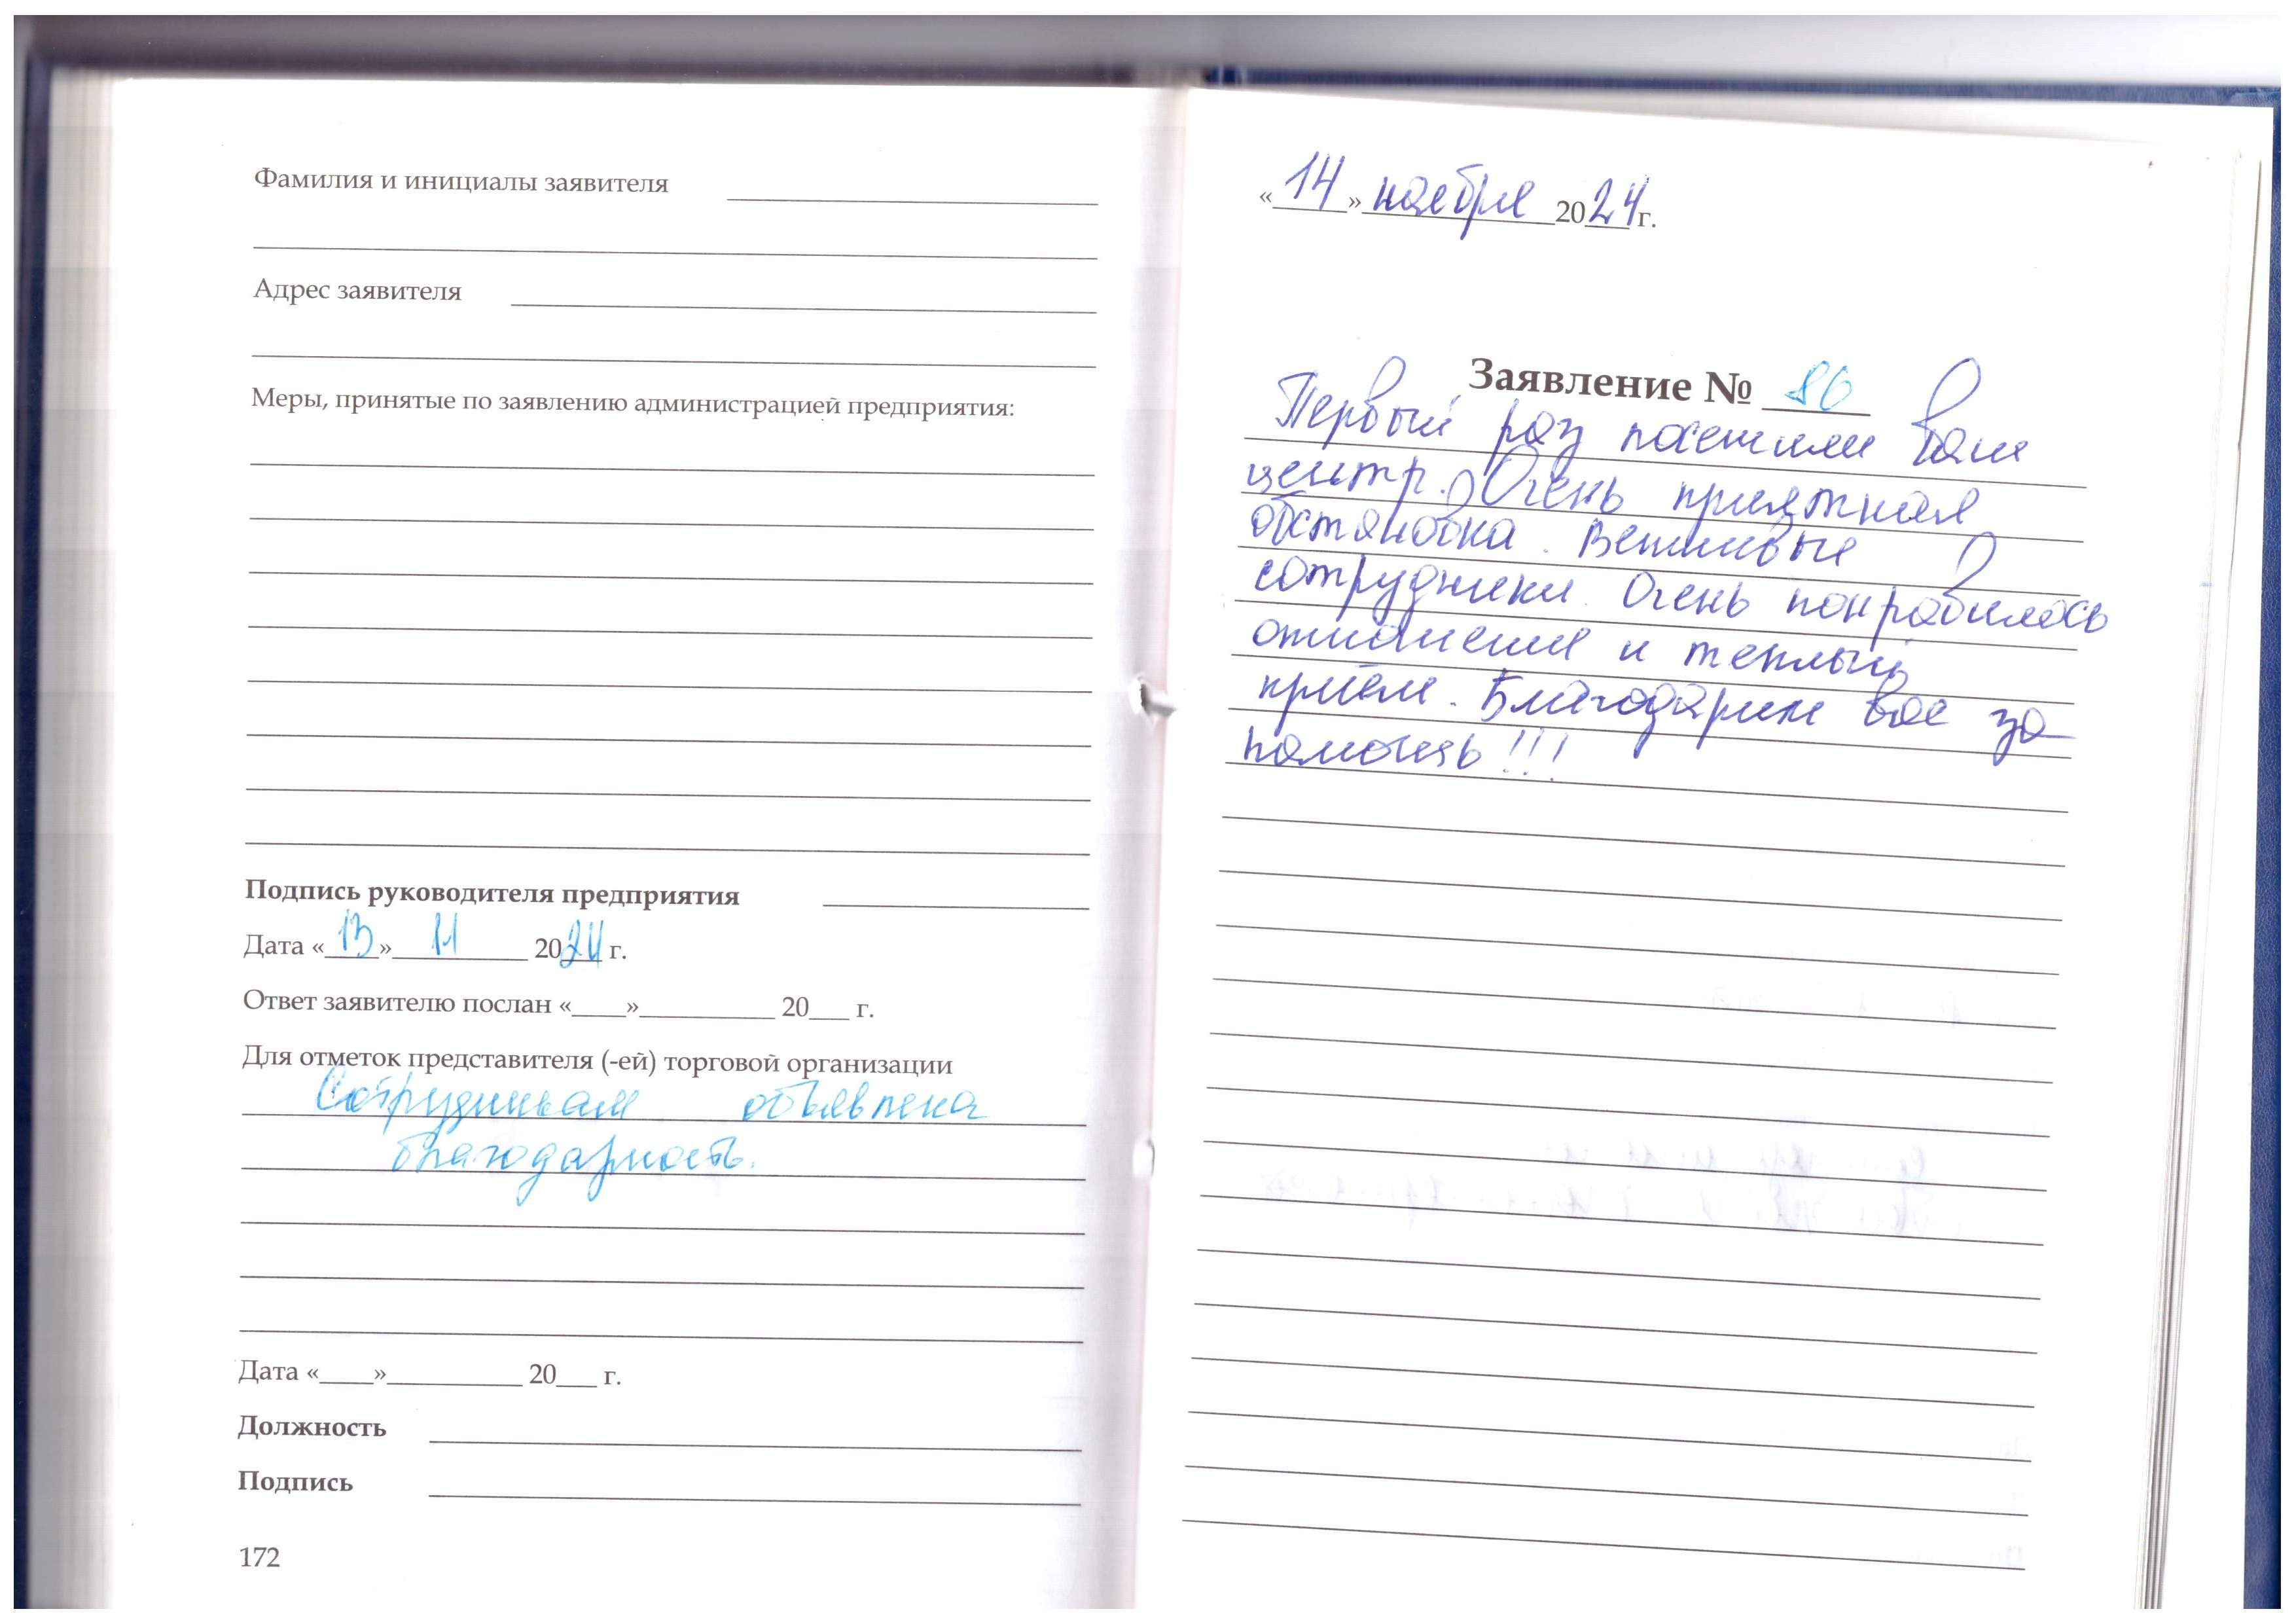 Фамилия и инициалы заявителя
Адрес заявителя
Меры, принятые по заявлению администрацией предприятия:
Подпись руководителя предприятия
Дата «13» 11 2024 г.
Ответ заявителю послан «____»__________ 20___ г.
Для отметок представителя (-ей) торговой организации
Сотрудникам объявлена
благодарность.
Дата «____»__________ 20___ г.
Должность
Подпись
172
«14» ноября 2024 г.
Заявление № 86
Первый раз посетили ваш
центр. Очень приятная
обстановка. Вежливые
сотрудники. Очень понравилось
отношение и теплый
приём. Благодарим вас за
помощь!!!